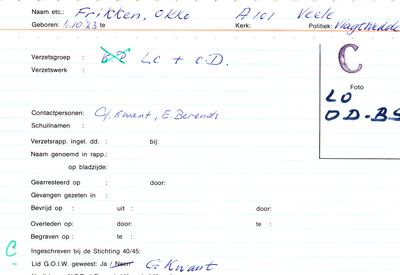 Naam etc.: Frikken, Okko A 101 Veele
Geboren: 1.10.'23 te Kerk: Politiek: Vlagtwedde
C
Verzetsgroep : LO + OD.
Verzetswerk :
Foto
LO
OD-BS
Contactpersonen: G. Kwant, E. Berends
Schuilnamen :
Verzetsrapp. ingel. dd. : bij:
Naam genoemd in rapp.:
op bladzijde:
Gearresteerd op : door:
Gevangen gezeten in :
Bevrijd op : uit : door:
Overleden op: door: te :
Begraven op : te :
C Ingeschreven bij de Stichting 40/45:
Lid G.O.I.W. geweest: Ja / Neen G. Kwant